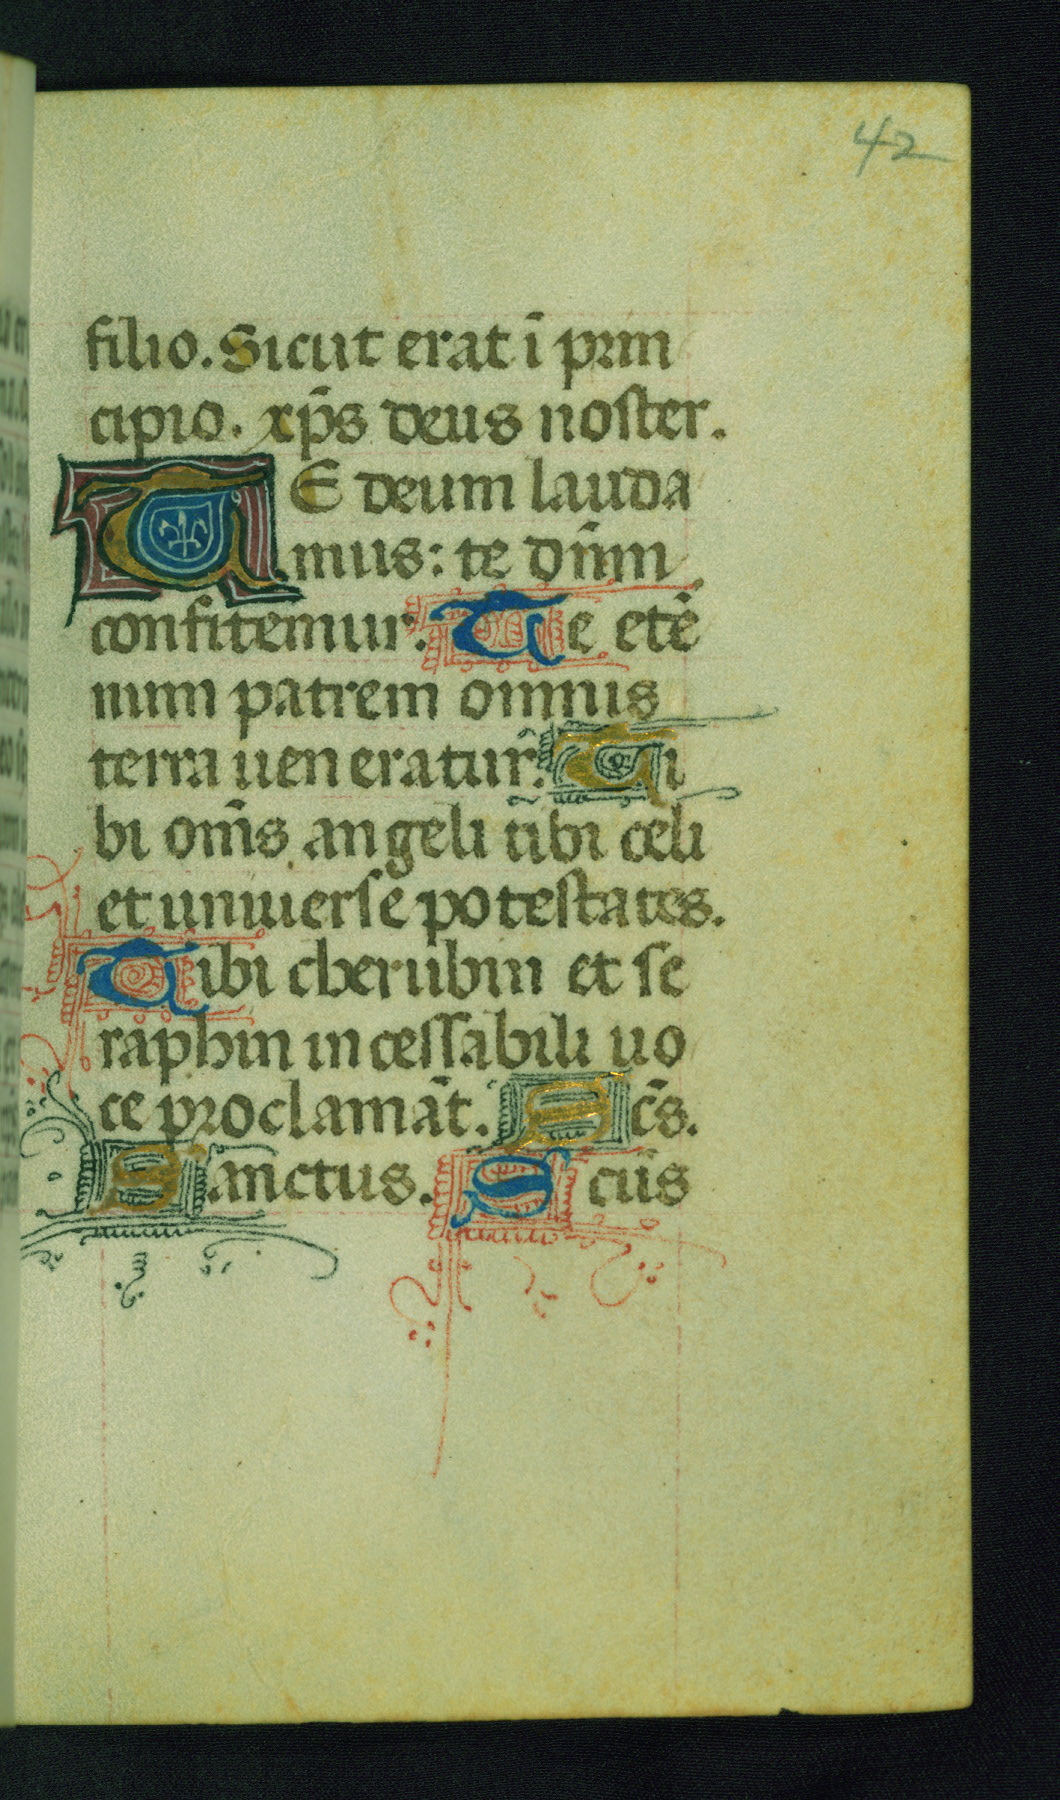 42
filio. Sicut erat ī prin
cipio. xp̄s deus noster.
TE deum lauda
mus: te dn̄m
confitemur. Te etē
num patrem omnis
terra ueneratur. Ti
bi om̄s angeli tibi celi
et uniuerse potestates.
Tibi cherubin et se
raphin incessabili uo
ce proclamāt. Sc̄s.
Sanctus. Scūs